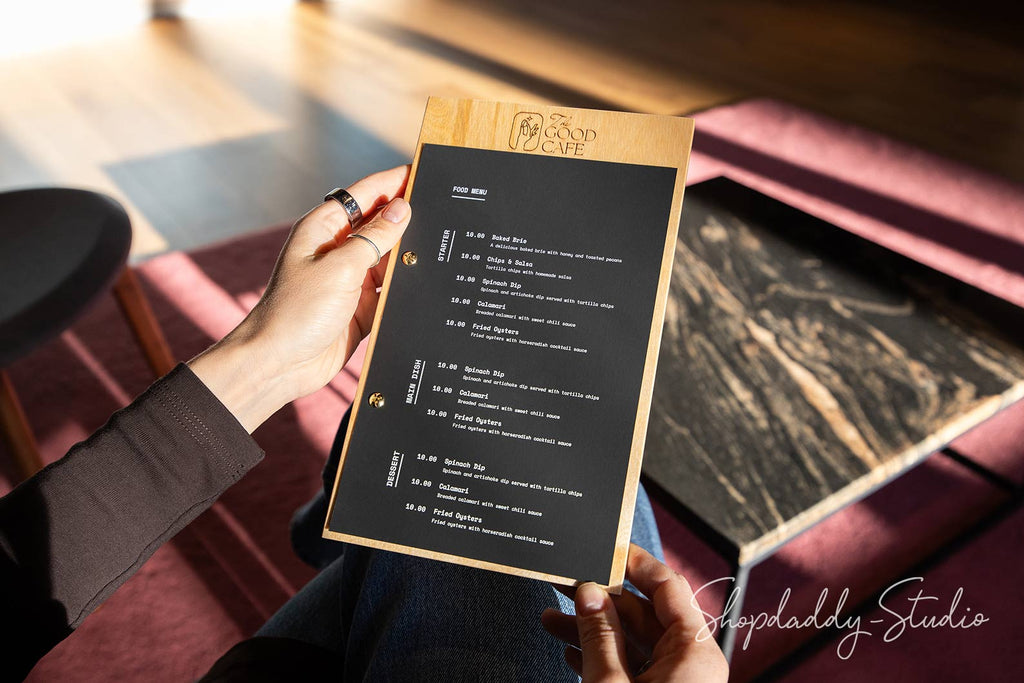 The
GOOD
CAFE
FOOD MENU
STARTER
10.00 Baked Brie
A delicious baked brie with honey and toasted pecans
10.00 Chips & Salsa
Tortilla chips with homemade salsa
10.00 Spinach Dip
Spinach and artichoke dip served with tortilla chips
10.00 Calamari
Breaded calamari with sweet chili sauce
10.00 Fried Oysters
Fried oysters with horseradish cocktail sauce
MAIN DISH
10.00 Spinach Dip
Spinach and artichoke dip served with tortilla chips
10.00 Calamari
Breaded calamari with sweet chili sauce
10.00 Fried Oysters
Fried oysters with horseradish cocktail sauce
DESSERT
10.00 Spinach Dip
Spinach and artichoke dip served with tortilla chips
10.00 Calamari
Breaded calamari with sweet chili sauce
10.00 Fried Oysters
Fried oysters with horseradish cocktail sauce
Shopdaddy-Studio